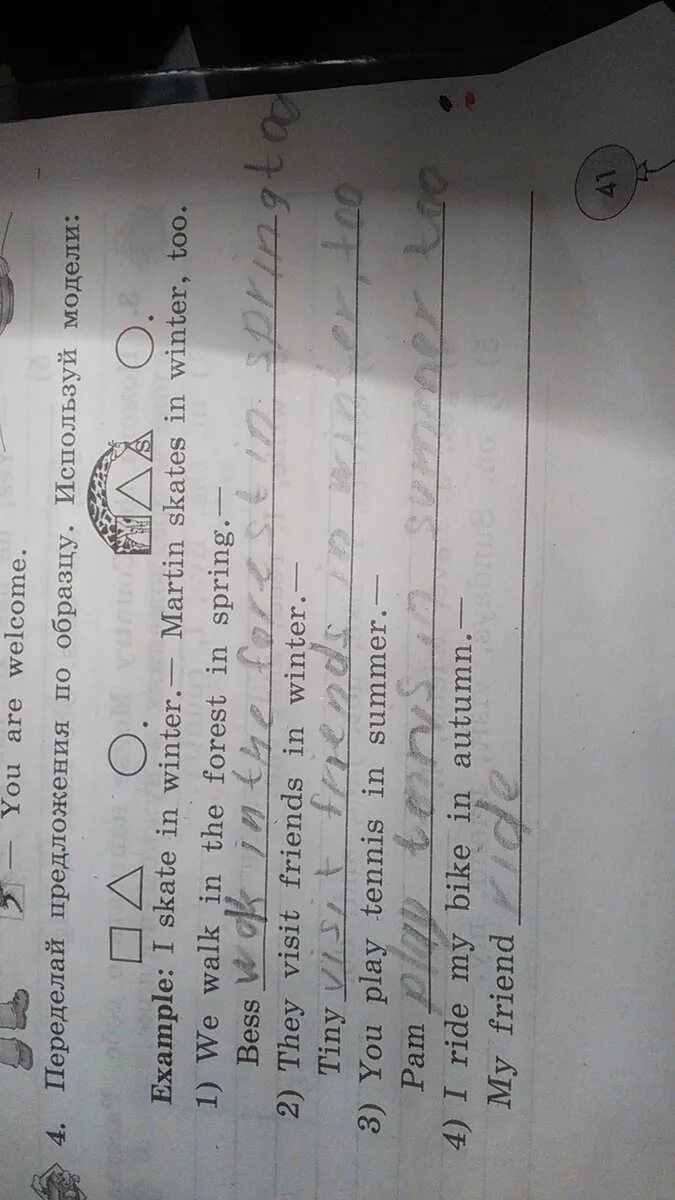 — You are welcome.
4. Переделай предложения по образцу. Используй модели:
s
Example: I skate in winter.— Martin skates in winter, too.
1) We walk in the forest in spring.—
Bess wak in the forest in spring too
2) They visit friends in winter.—
Tiny visit friends in winter, too
3) You play tennis in summer.—
Pam play tennis in summer too
4) I ride my bike in autumn.—
My friend ride
41